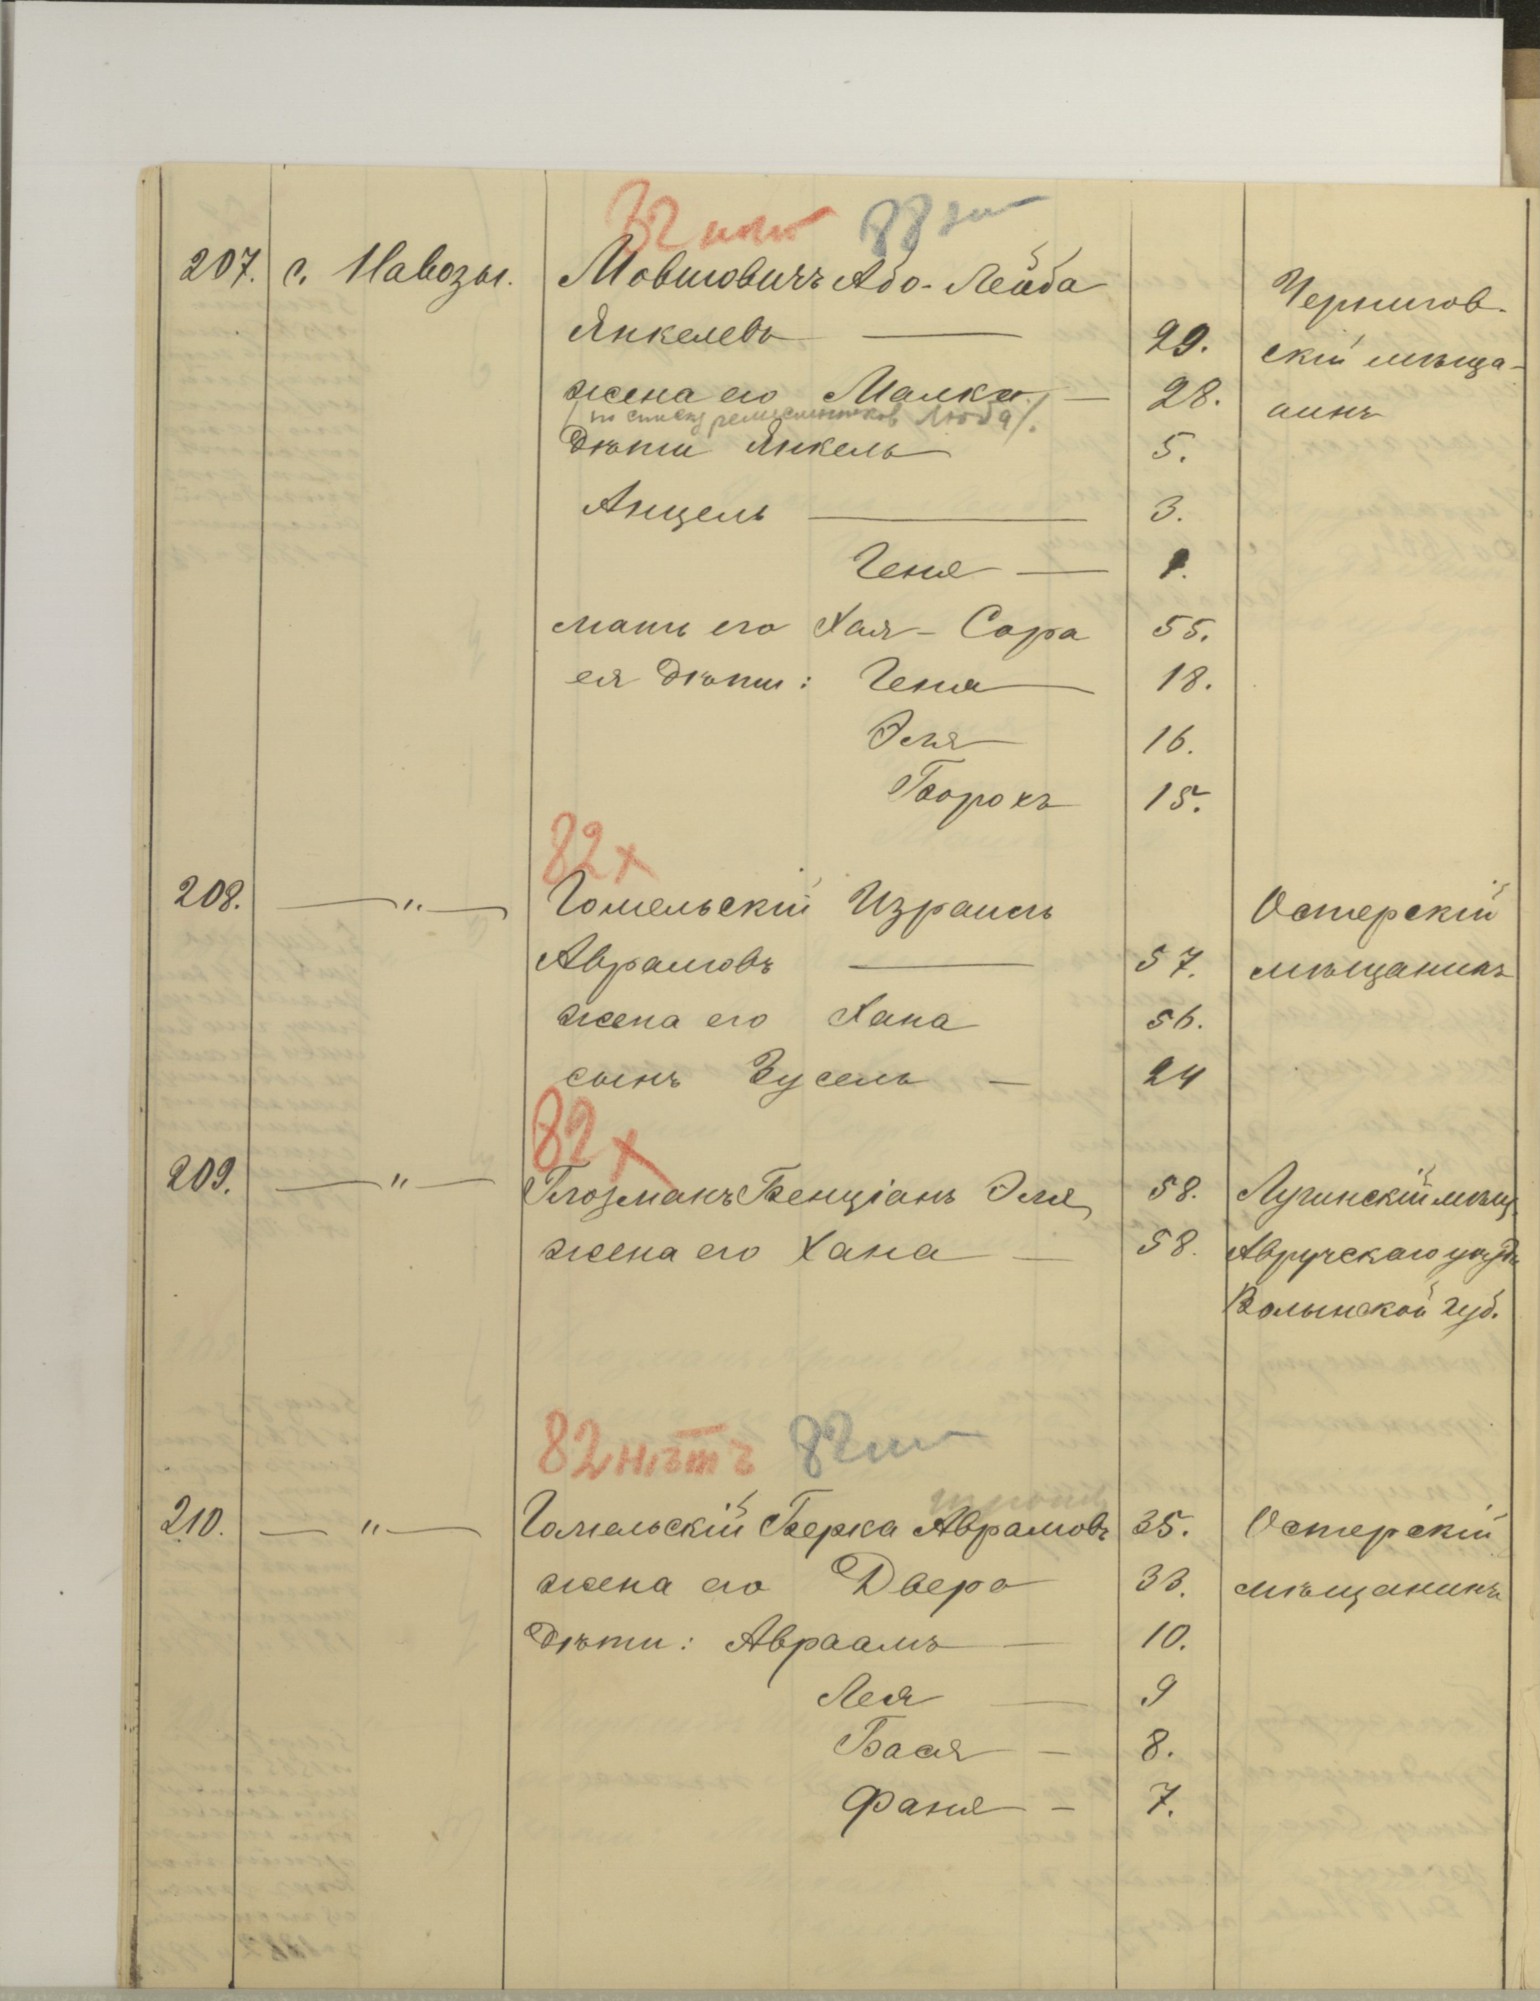 82 нѣт 88 
207. с. Навозы. Мовшовичъ Або-Лейба
Янкелевъ — 29. Чернигов-
жена его Малка — 28. скій мѣща-
/по списку ремесленников Люба/. нинъ
Дѣти Янкель 5.
Анцель — 3.
Геня — 1.
мать его Хая-Сора 55.
ея Дѣти: Геня — 18.
Эля 16.
Борохъ 15.
82 х
208. —"— Гомельскій Израиль Остерскій
Аврамовъ — 57. мѣщанинъ
жена его Хана 56.
сынъ Зусель — 24
82 х
209. —"— Глозманъ Бенціанъ Эля 58. Лугинскій мѣщ.
жена его Хана — 58. Авручскаго уѣзда
Волынской губ.
82 нѣтъ 82
210. —"— Гомельскій Берка Аврамовъ 35. Остерскій
жена его Двера 33. мѣщанинъ
Дѣти: Авраамъ — 10.
Лея — 9
Бася — 8.
Фаня — 7.